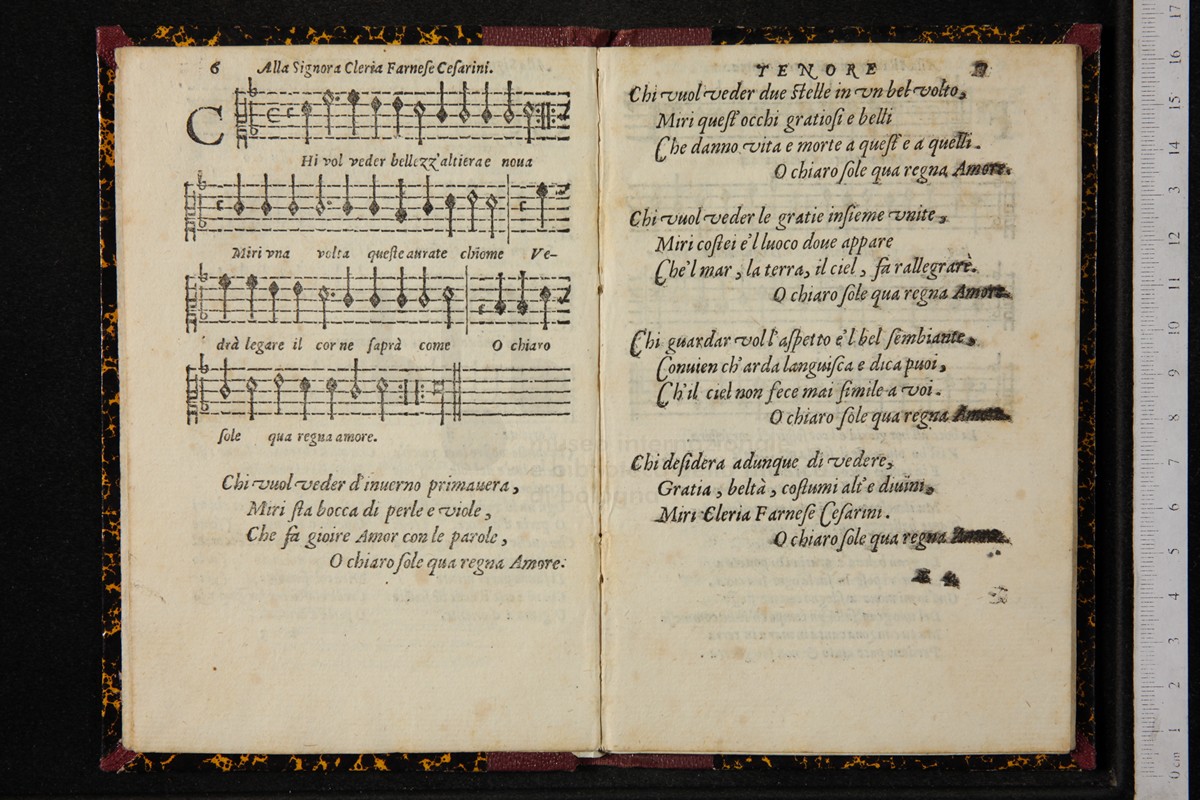 6 Alla Signora Cleria Farneſe Ceſarini.
C
Hi vol veder bellezz'altiera e noua
Miri vna volta queſte aurate chiome Ve-
drà legare il cor ne ſaprà come O chiaro
ſole qua regna amore.
Chi vuol veder d'inuerno primauera,
Miri ſta bocca di perle e viole,
Che fa gioire Amor con le parole,
O chiaro ſole qua regna Amore.
TENORE
Chi vuol veder due ſtelle in vn bel volto,
Miri queſt'occhi gratioſi e belli
Che danno vita e morte a queſt'e a quelli.
O chiaro ſole qua regna Amore.
Chi vuol veder le gratie inſieme vnite,
Miri coſtei e'l luoco doue appare
Che'l mar, la terra, il ciel, fa rallegrare.
O chiaro ſole qua regna Amore.
Chi guardar vol l'aſpetto e'l bel ſembiante,
Conuien ch'arda languiſca e dica puoi,
Ch'il ciel non fece mai ſimile a voi.
O chiaro ſole qua regna Amore.
Chi deſidera adunque di vedere,
Gratia, beltà, coſtumi alt'e diuini,
Miri Cleria Farneſe Ceſarini.
O chiaro ſole qua regna
museo internazionale
di bologna
0 cm 1 2 3 4 5 6 7 8 9 10 11 12 13 14 15 16 17